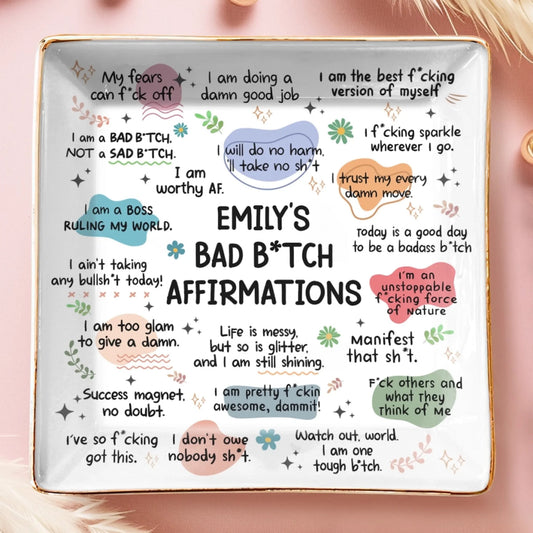 My fears
can f*ck off
I am doing a
damn good job
I am the best f*cking
version of myself
I am a BAD B*TCH.
NOT a SAD B*TCH.
I will do no harm,
I'll take no sh*t
I f*cking sparkle
wherever I go.
I am
worthy AF.
I trust my every
damn move.
I am a BOSS
RULING MY WORLD.
EMILY'S
BAD B*TCH
AFFIRMATIONS
Today is a good day
to be a badass b*tch
I ain't taking
any bullsh*t today!
I'm an
unstoppable
f*cking force
of Nature
I am too glam
to give a damn.
Life is messy,
but so is glitter,
and I am still shining.
Manifest
that sh*t.
Success magnet,
no doubt.
I am pretty f*ckin
awesome, dammit!
F*ck others and
what they
Think of Me
I've so f*cking
got this.
I don't owe
nobody sh*t.
Watch out, world.
I am one
tough b*tch.